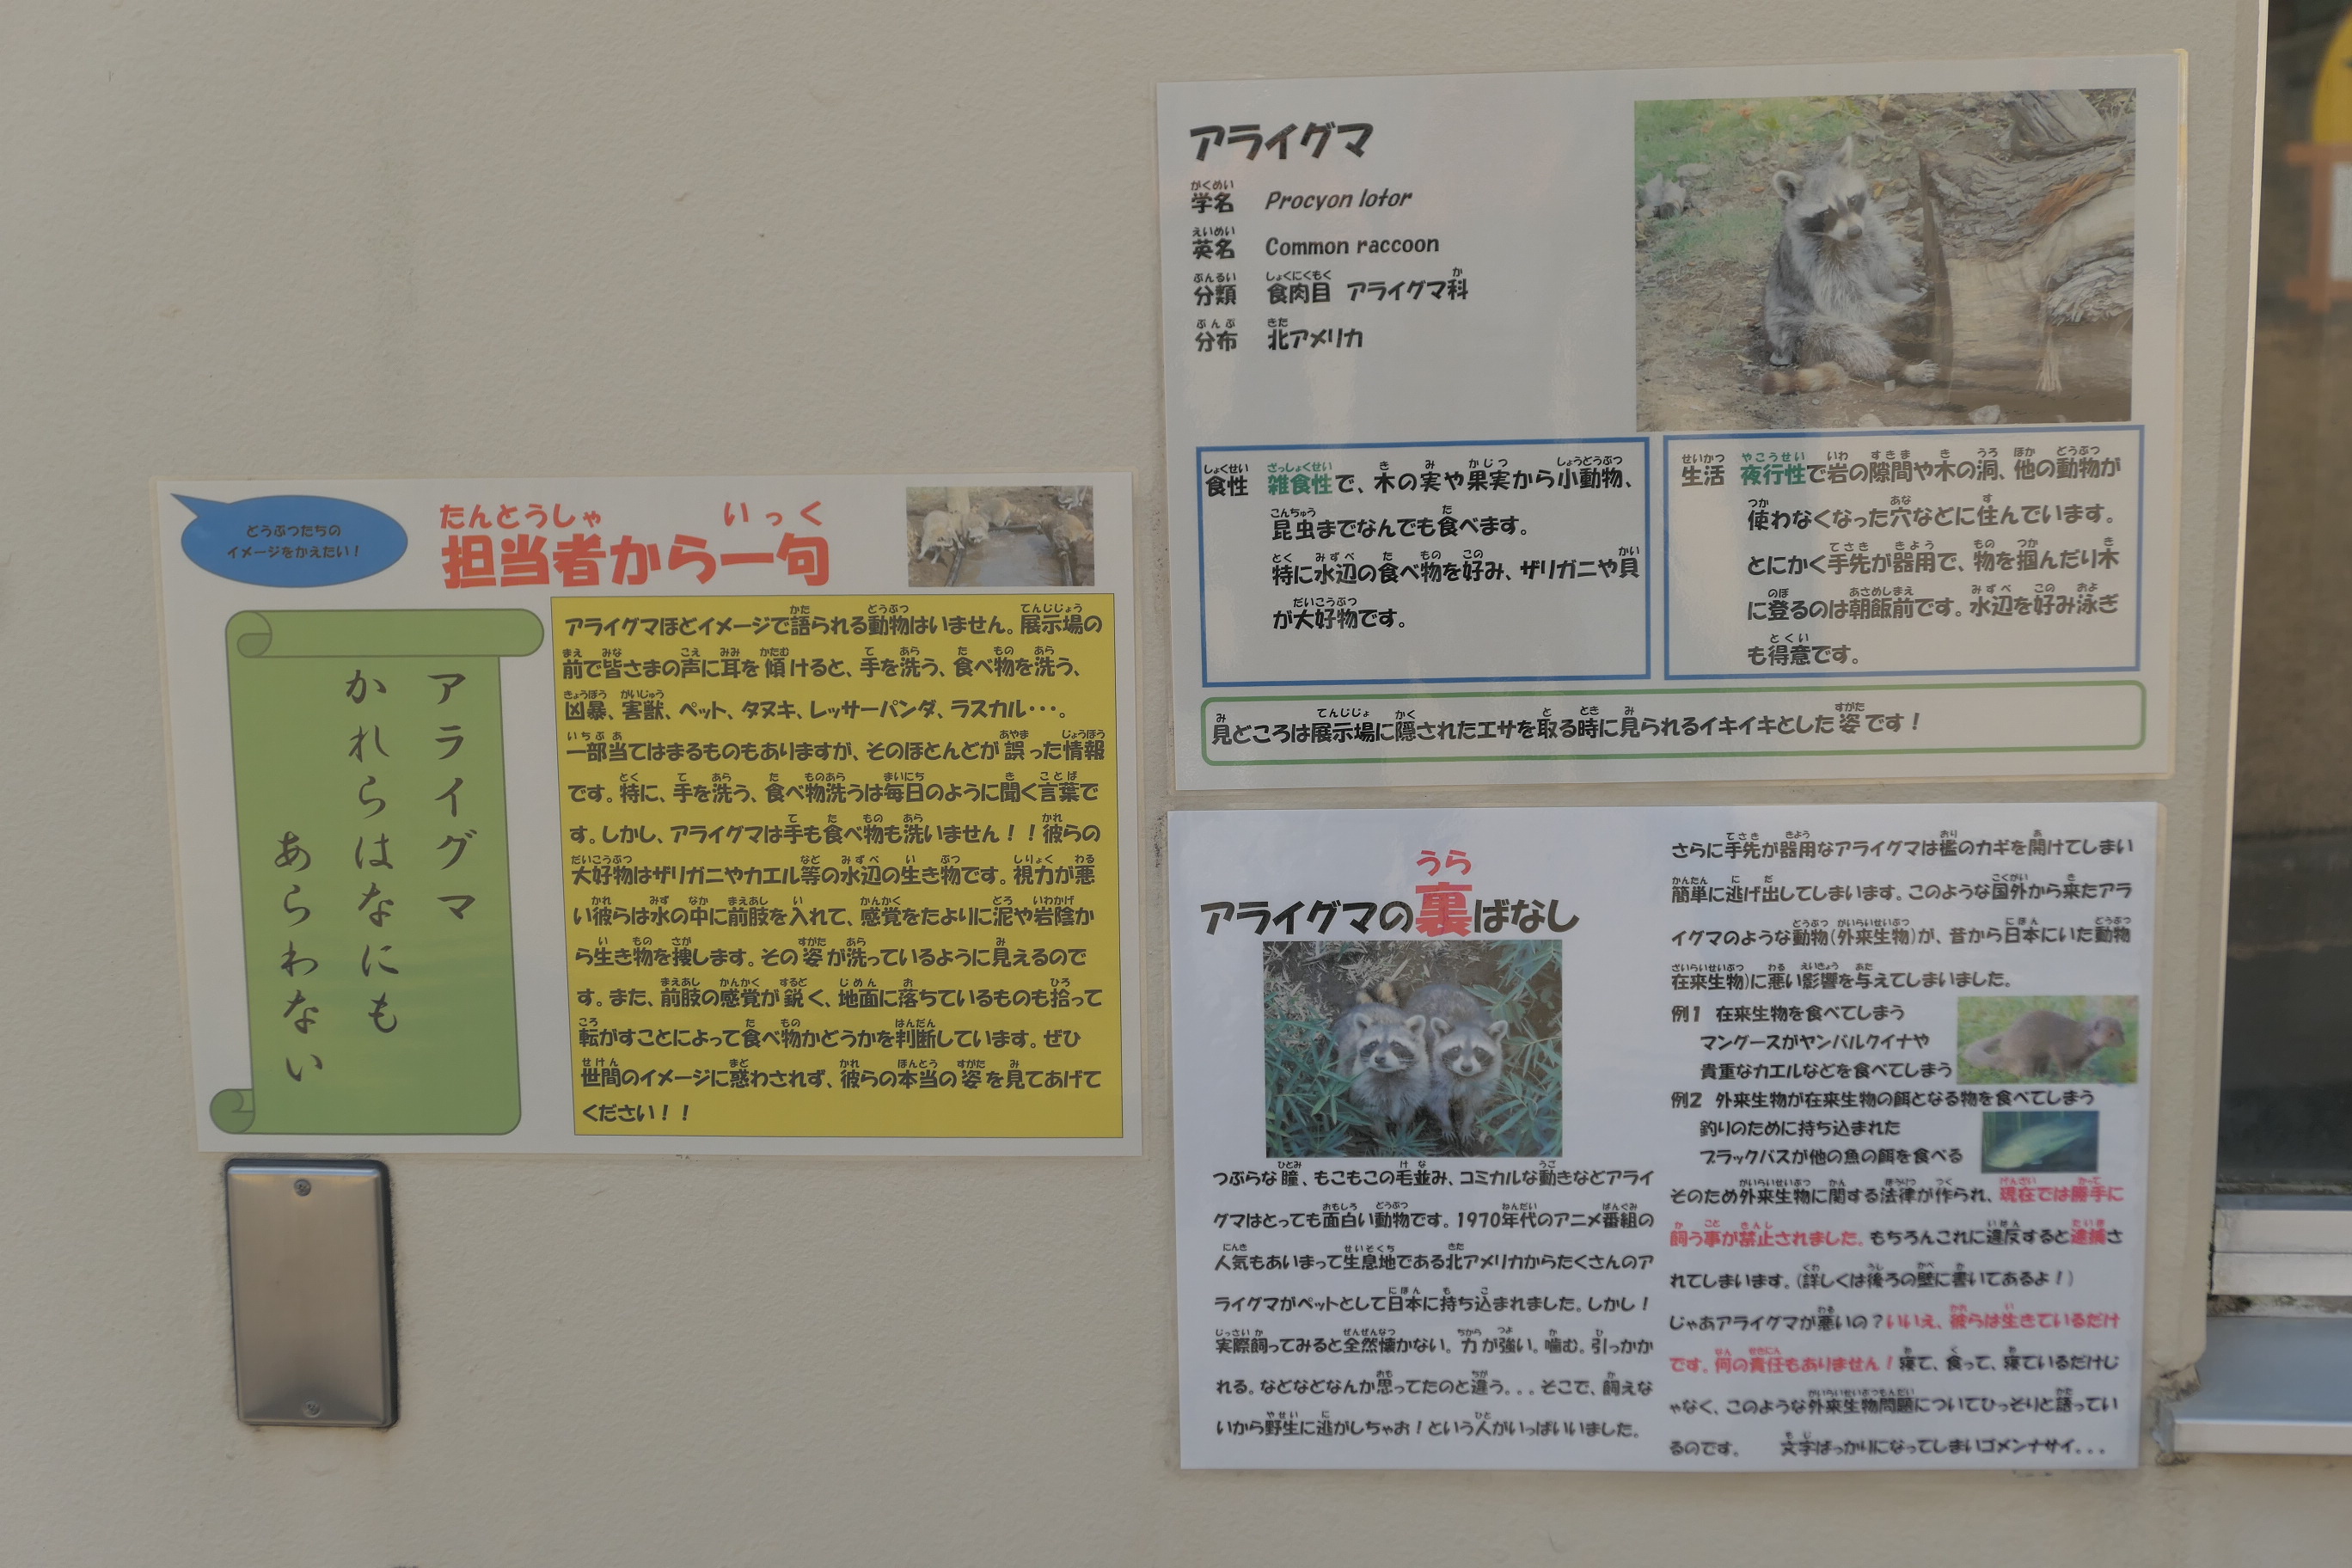 どうぶつたちの
イメージをかえたい！
担当者から一句
アライグマ
かれらはなにも
あらわない
アライグマほどイメージで語られる動物はいません。展示場の
前で皆さまの声に耳を傾けると、手を洗う、食べ物を洗う、
凶暴、害獣、ペット、タヌキ、レッサーパンダ、ラスカル・・・。
一部当てはまるものもありますが、そのほとんどが誤った情報
です。特に、手を洗う、食べ物洗うは毎日のように聞く言葉で
す。しかし、アライグマは手も食べ物も洗いません！！彼らの
大好物はザリガニやカエル等の水辺の生き物です。視力が悪
い彼らは水の中に前肢を入れて、感覚をたよりに泥や岩陰か
ら生き物を捜します。その姿が洗っているように見えるので
す。また、前肢の感覚が鋭く、地面に落ちているものも拾って
転がすことによって食べ物かどうかを判断しています。ぜひ
世間のイメージに惑わされず、彼らの本当の姿を見てあげて
ください！！
アライグマ
学名 Procyon lotor
英名 Common raccoon
分類 食肉目 アライグマ科
分布 北アメリカ
食性 雑食性で、木の実や果実から小動物、
昆虫までなんでも食べます。
特に水辺の食べ物を好み、ザリガニや貝
が大好物です。
生活 夜行性で岩の隙間や木の洞、他の動物が
使わなくなった穴などに住んでいます。
とにかく手先が器用で、物を掴んだり木
に登るのは朝飯前です。水辺を好み泳ぎ
も得意です。
見どころは展示場に隠されたエサを取る時に見られるイキイキとした姿です！
アライグマの裏ばなし
つぶらな瞳、もこもこの毛並み、コミカルな動きなどアライ
グマはとっても面白い動物です。1970年代のアニメ番組の
人気もあいまって生息地である北アメリカからたくさんのア
ライグマがペットとして日本に持ち込まれました。しかし！
実際飼ってみると全然懐かない。力が強い。噛む。引っかか
れる。などなどなんか思ってたのと違う。。。そこで、飼えな
いから野生に逃がしちゃお！という人がいっぱいいました。
さらに手先が器用なアライグマは檻のカギを開けてしまい
簡単に逃げ出してしまいます。このような国外から来たアラ
イグマのような動物（外来生物）が、昔から日本にいた動物
在来生物）に悪い影響を与えてしまいました。
例1 在来生物を食べてしまう
マングースがヤンバルクイナや
貴重なカエルなどを食べてしまう
例2 外来生物が在来生物の餌となる物を食べてしまう
釣りのために持ち込まれた
ブラックバスが他の魚の餌を食べる
そのため外来生物に関する法律が作られ、現在では勝手に
飼う事が禁止されました。もちろんこれに違反すると逮捕さ
れてしまいます。（詳しくは後ろの壁に書いてあるよ！）
じゃあアライグマが悪いの？いいえ、彼らは生きているだけ
です。何の責任もありません！寝て、食って、寝ているだけじ
ゃなく、このような外来生物問題についてひっそりと語ってい
るのです。 文字ばっかりになってしまいゴメンナサイ。。。